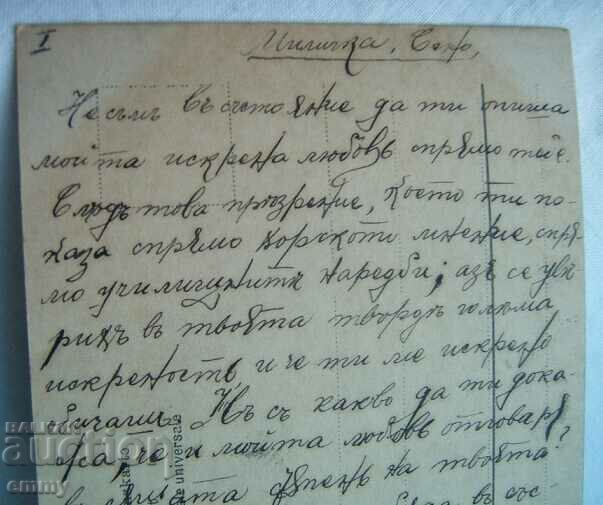 I
Миличка, Сено,
Не съмъ въ състояние да ти опиша
мойта искрена любовь спрямо тебе.
Следъ това презрение, което ти по-
каза спрямо хорското мнение, спря-
мо училищните наредби; азъ се уве-
рихъ въ твойта твърдѣ голяма
искреность и че ти ме искрено
обичашъ. Нъ съ какво да ти дока-
жа, че и мойта любовь отговаря
въ степень на твойта?
въ със-
BALKAN
auction
emmy
universala